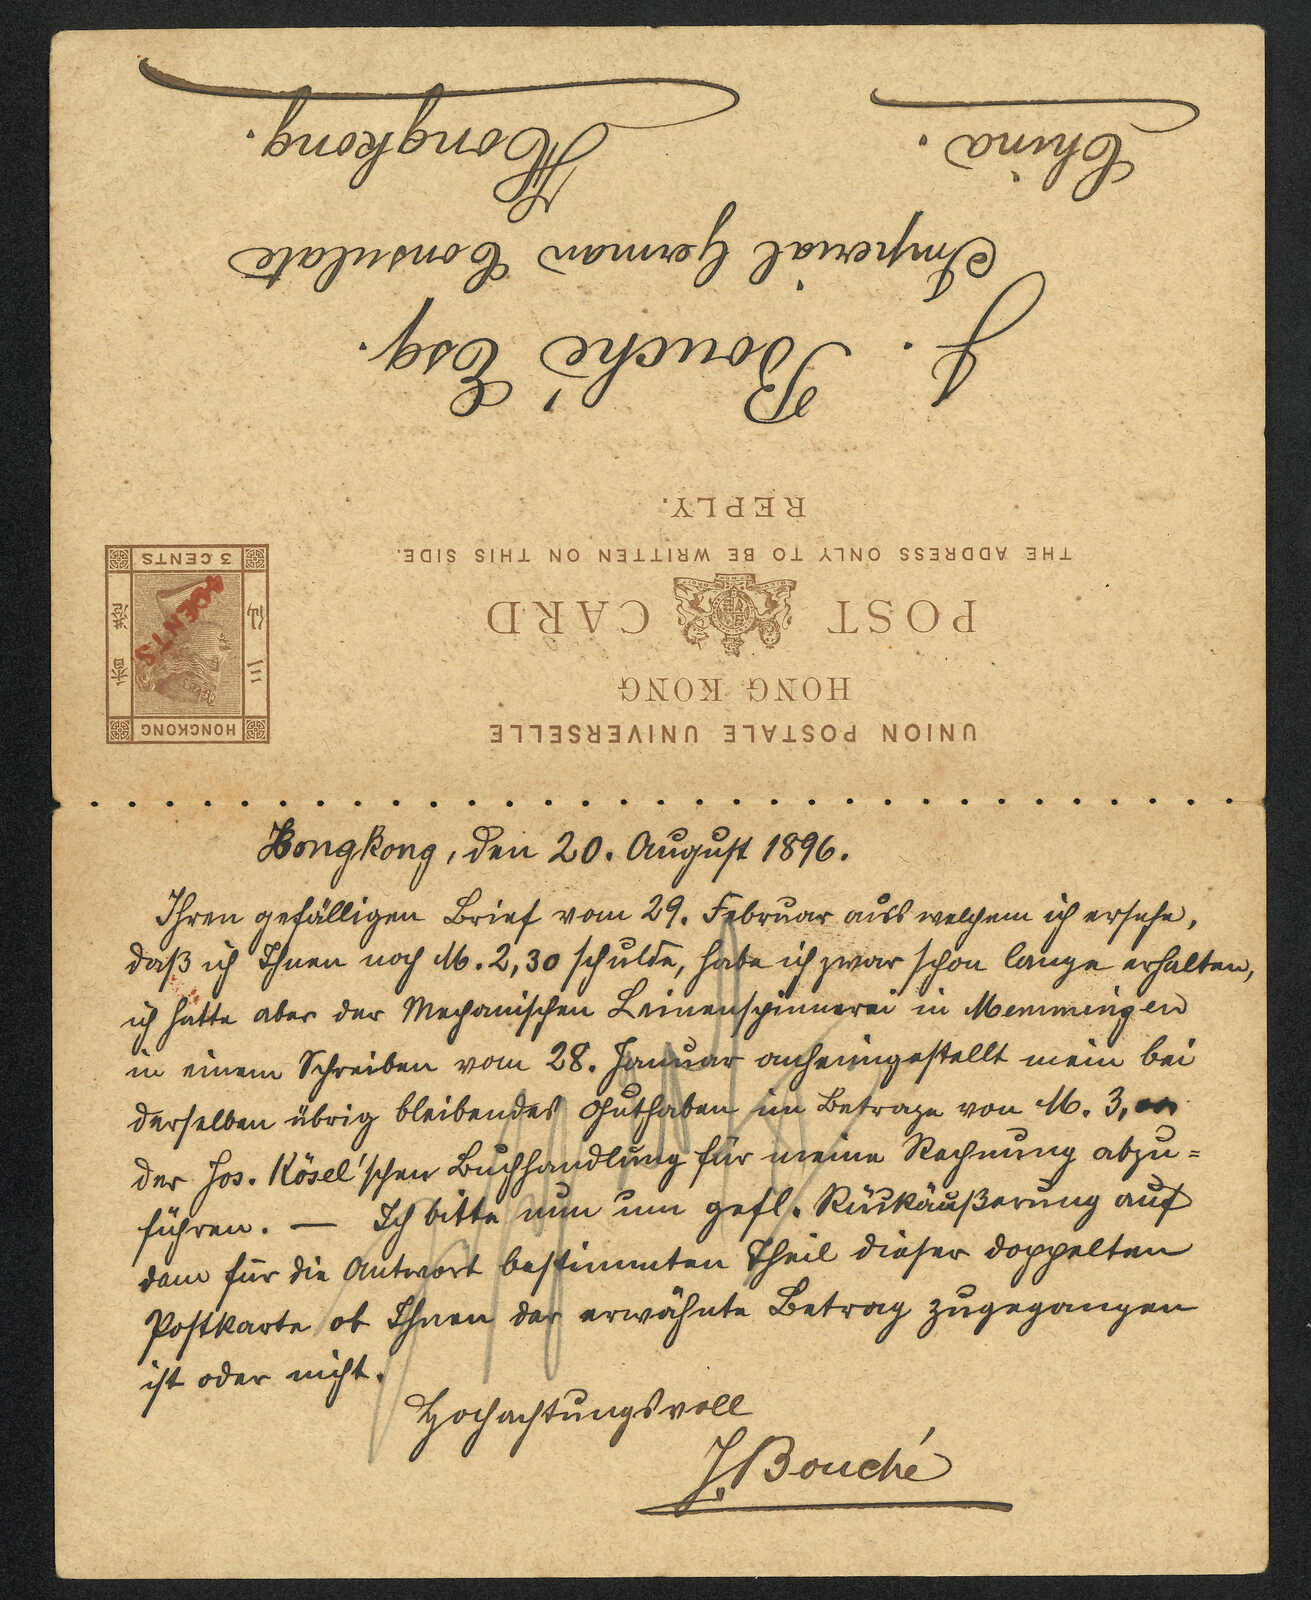 Hongkong.
China.
Imperial German Consulate
J. Bouché Esq.
REPLY.
THE ADDRESS ONLY TO BE WRITTEN ON THIS SIDE.
POST CARD
HONG KONG
UNION POSTALE UNIVERSELLE
3 CENTS
4 CENTS
HONGKONG
Hongkong, den 20. August 1896.
Ihren gefälligen Brief vom 29. Februar aus welchem ich ersehe,
daß ich Ihnen noch M. 2,30 schulde, habe ich zwar schon lange erhalten,
ich hatte aber der Mechanischen Leinenspinnerei in Memmingen
in einem Schreiben vom 28. Januar anheimgestellt mein bei
derselben übrig bleibendes Guthaben im Betrage von M. 3,
der Jos. Kösel'schen Buchhandlung für meine Rechnung abzu=
führen. — Ich bitte nun um gefl. Rückäußerung auf
dem für die Antwort bestimmten Theil dieser doppelten
Postkarte ob Ihnen der erwähnte Betrag zugegangen
ist oder nicht.
Hochachtungsvoll
J. Bouché